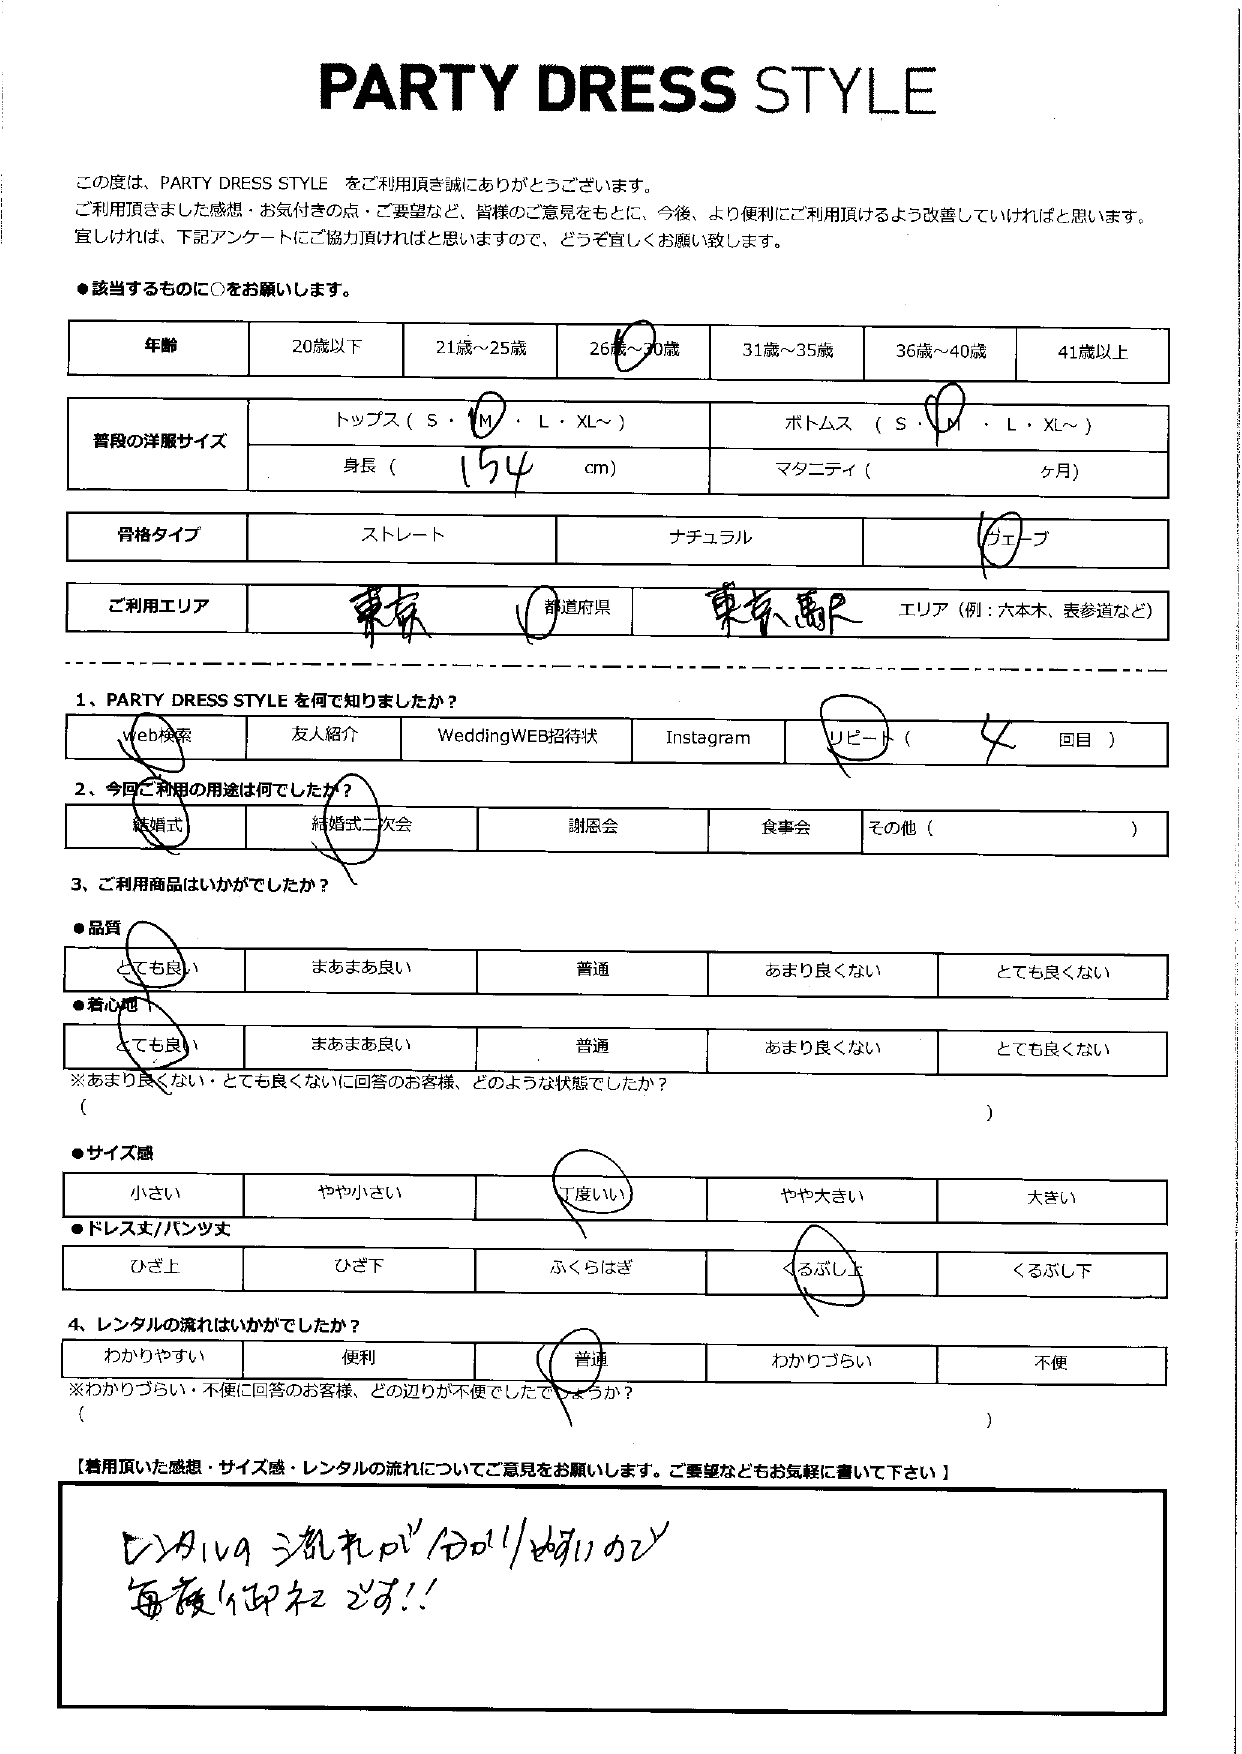 PARTY DRESS STYLE
この度は、PARTY DRESS STYLE をご利用頂き誠にありがとうございます。
ご利用頂きました感想・お気付きの点・ご要望など、皆様のご意見をもとに、今後、より便利にご利用頂けるよう改善していければと思います。
宜しければ、下記アンケートにご協力頂ければと思いますので、どうぞ宜しくお願い致します。
●該当するものに○をお願いします。
年齢 20歳以下 21歳～25歳 26歳～30歳 31歳～35歳 36歳～40歳 41歳以上
普段の洋服サイズ トップス ( S ・ M ・ L ・ XL～ ) ボトムス ( S ・ M ・ L ・ XL～ )
身長 ( 154 cm) マタニティ ( ヶ月)
骨格タイプ ストレート ナチュラル ヴェーブ
ご利用エリア 東京 都道府県 東京駅 エリア（例：六本木、表参道など）
1、PARTY DRESS STYLE を何で知りましたか？
web検索 友人紹介 WeddingWEB招待状 Instagram リピート ( 4 回目 )
2、今回ご利用の用途は何でしたか？
結婚式 結婚式二次会 謝恩会 食事会 その他 ( )
3、ご利用商品はいかがでしたか？
●品質
とても良い まあまあ良い 普通 あまり良くない とても良くない
●着心地
とても良い まあまあ良い 普通 あまり良くない とても良くない
※あまり良くない・とても良くないに回答のお客様、どのような状態でしたか？
( )
●サイズ感
小さい やや小さい 丁度いい やや大きい 大きい
●ドレス丈/パンツ丈
ひざ上 ひざ下 ふくらはぎ くるぶし上 くるぶし下
4、レンタルの流れはいかがでしたか？
わかりやすい 便利 普通 わかりづらい 不便
※わかりづらい・不便に回答のお客様、どの辺りが不便でしたでしょうか？
( )
【着用頂いた感想・サイズ感・レンタルの流れについてご意見をお願いします。ご要望などもお気軽に書いて下さい】
レンタルの流れが分かりやすいので
毎度御社です!!